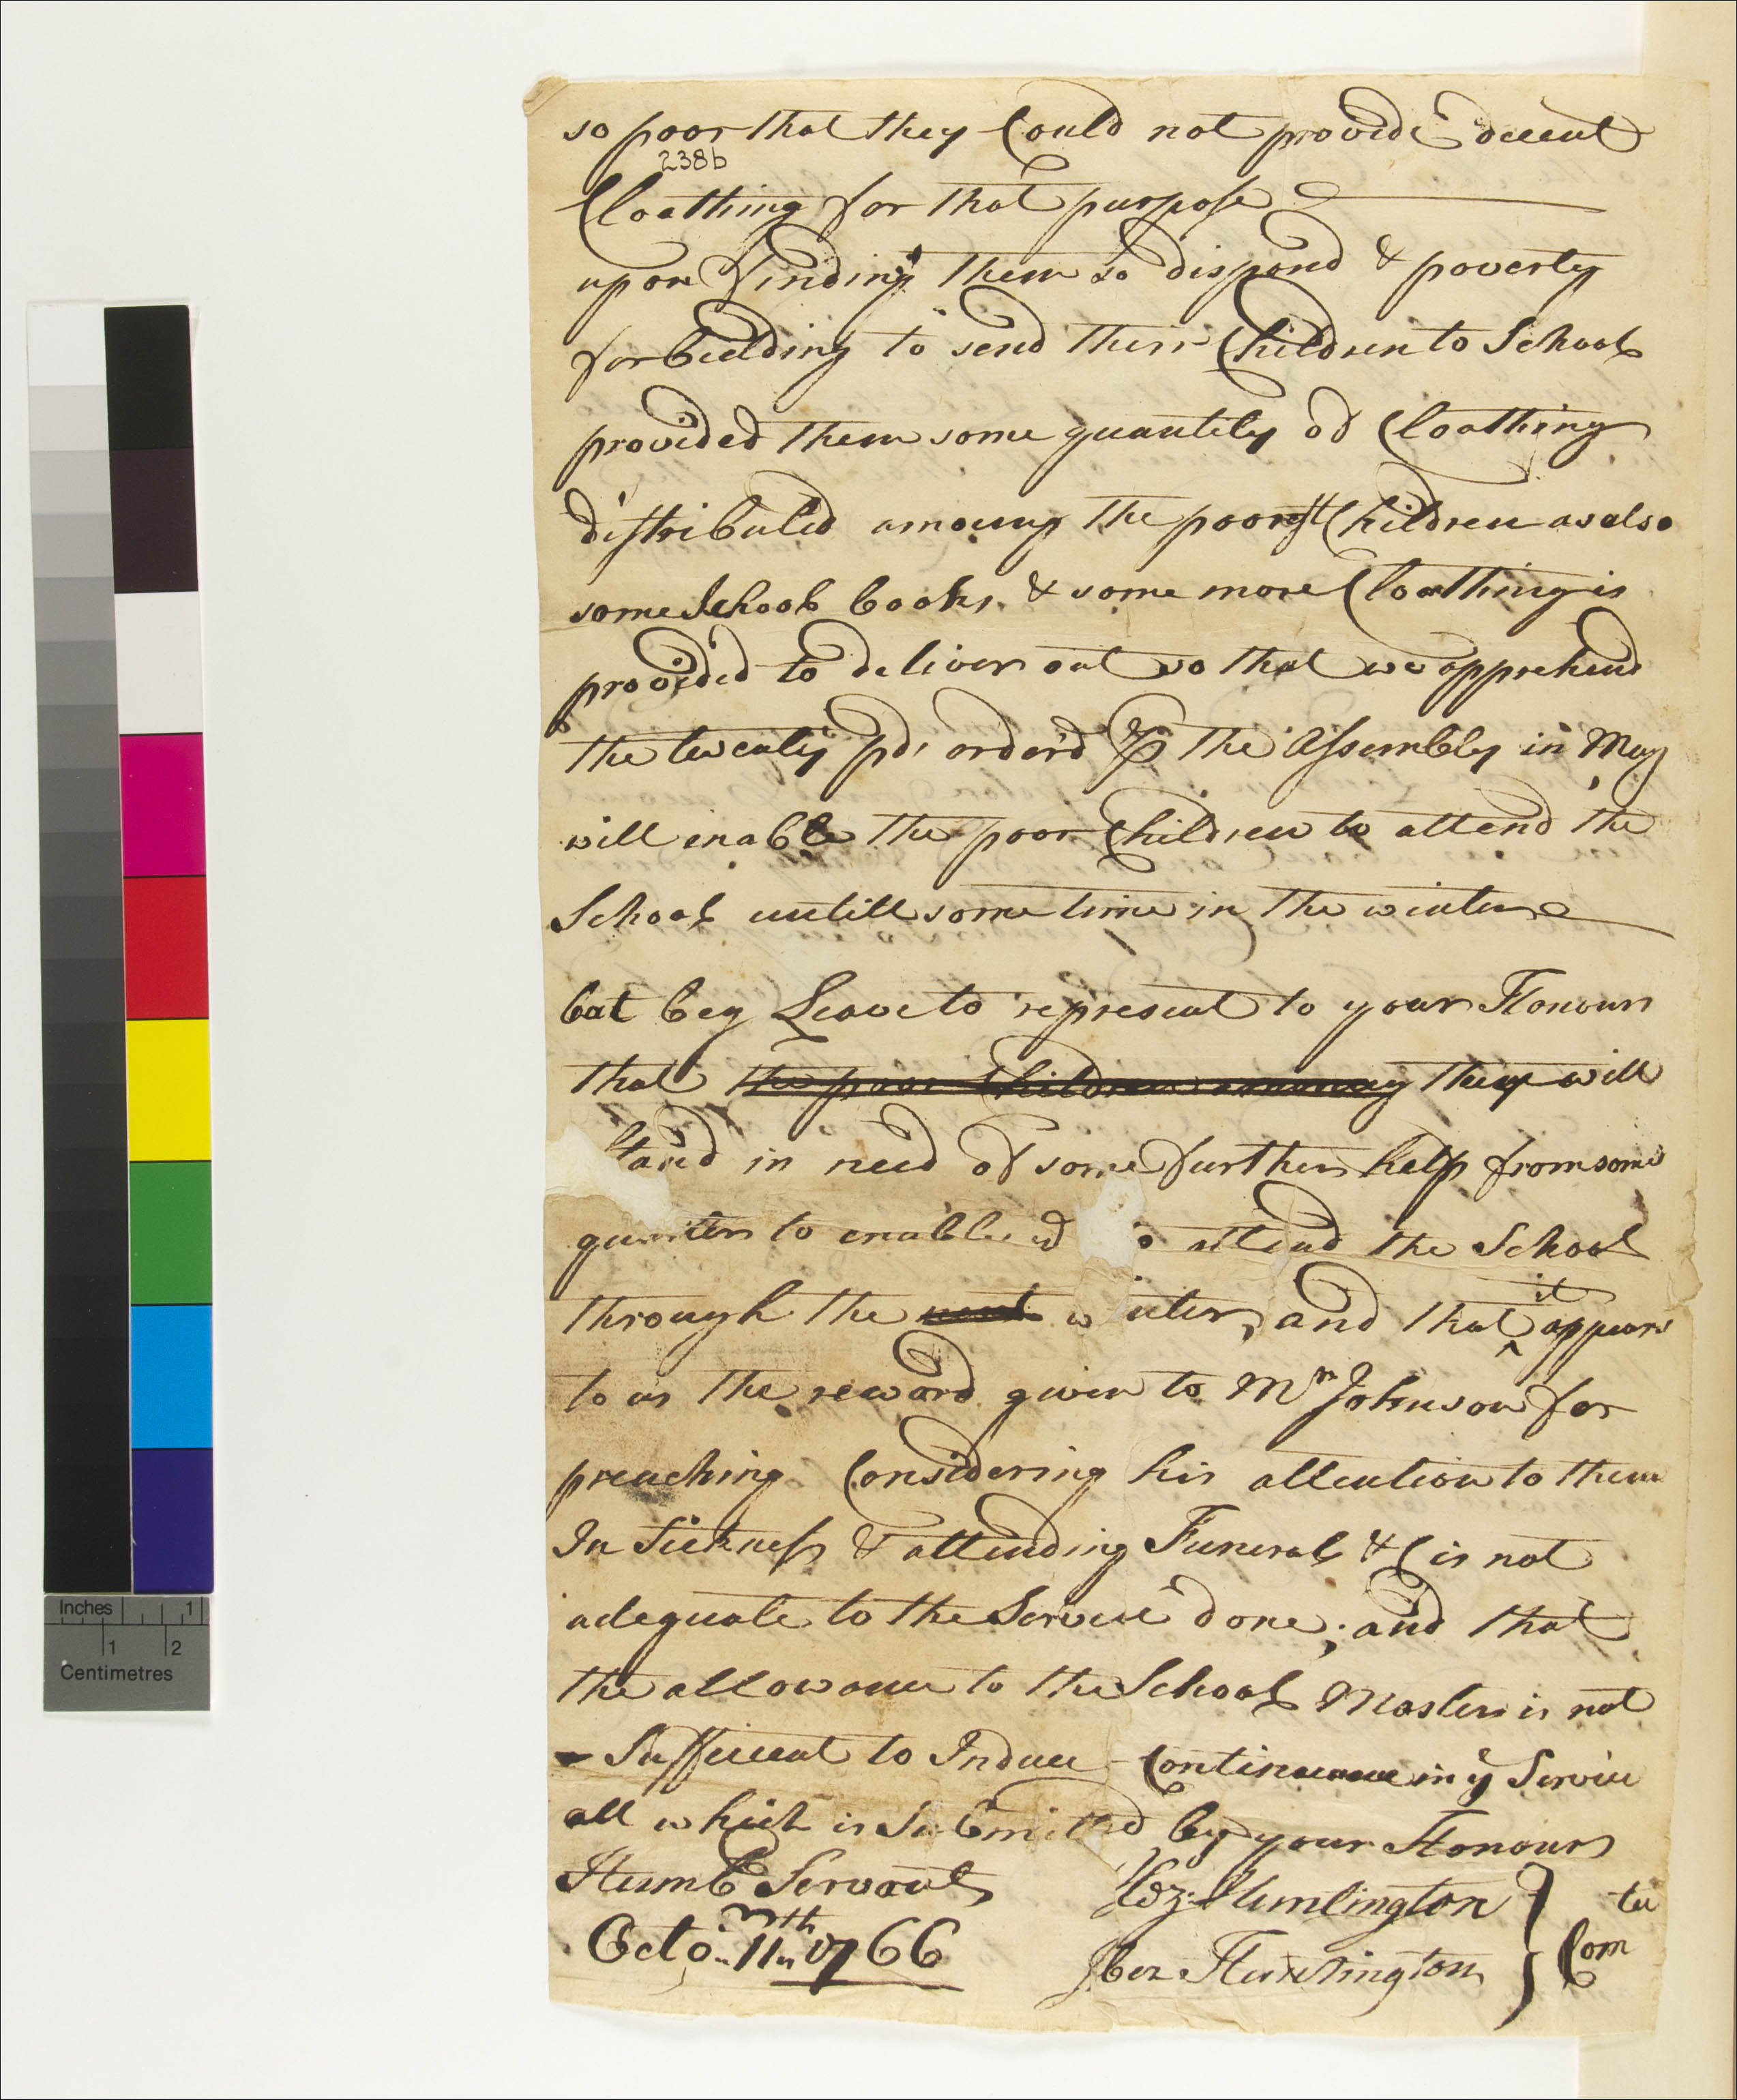 so poor that they Could not provide decent
238b
Cloathing for that purpose
upon Finding them so dispond & poverty
forbidding to send their Children to School
provided them some quantity of Cloathing
distributed amoung the poorest Children as also
some School books & some more Cloathing is
provided to deliver out so that we apprehend
the twenty pd, orderd ⅌ the Assembly in May
will enable the poor Children to attend the
School untill some time in the winter
but beg Leave to represent to your Honours
that the poor Children amoung they will
stand in need of some further help from some
quarter to enable to attend the School
it
through the next winter, and that ^ appears
to us the reward given to Mr Johnson for
preaching Considering his attention to them
In Sickness & attending Funerals &C is not
adequate to the Service done; and that
the allowance to the School Master is not
Sufficient to Induce Continuance in ye Service
all which is Submitted by your Honours
Humb Servants Hez: Huntington } tee
Octo. 11th 1766 Jbez Huntington } Com
Inches 1
1 2
Centimetres